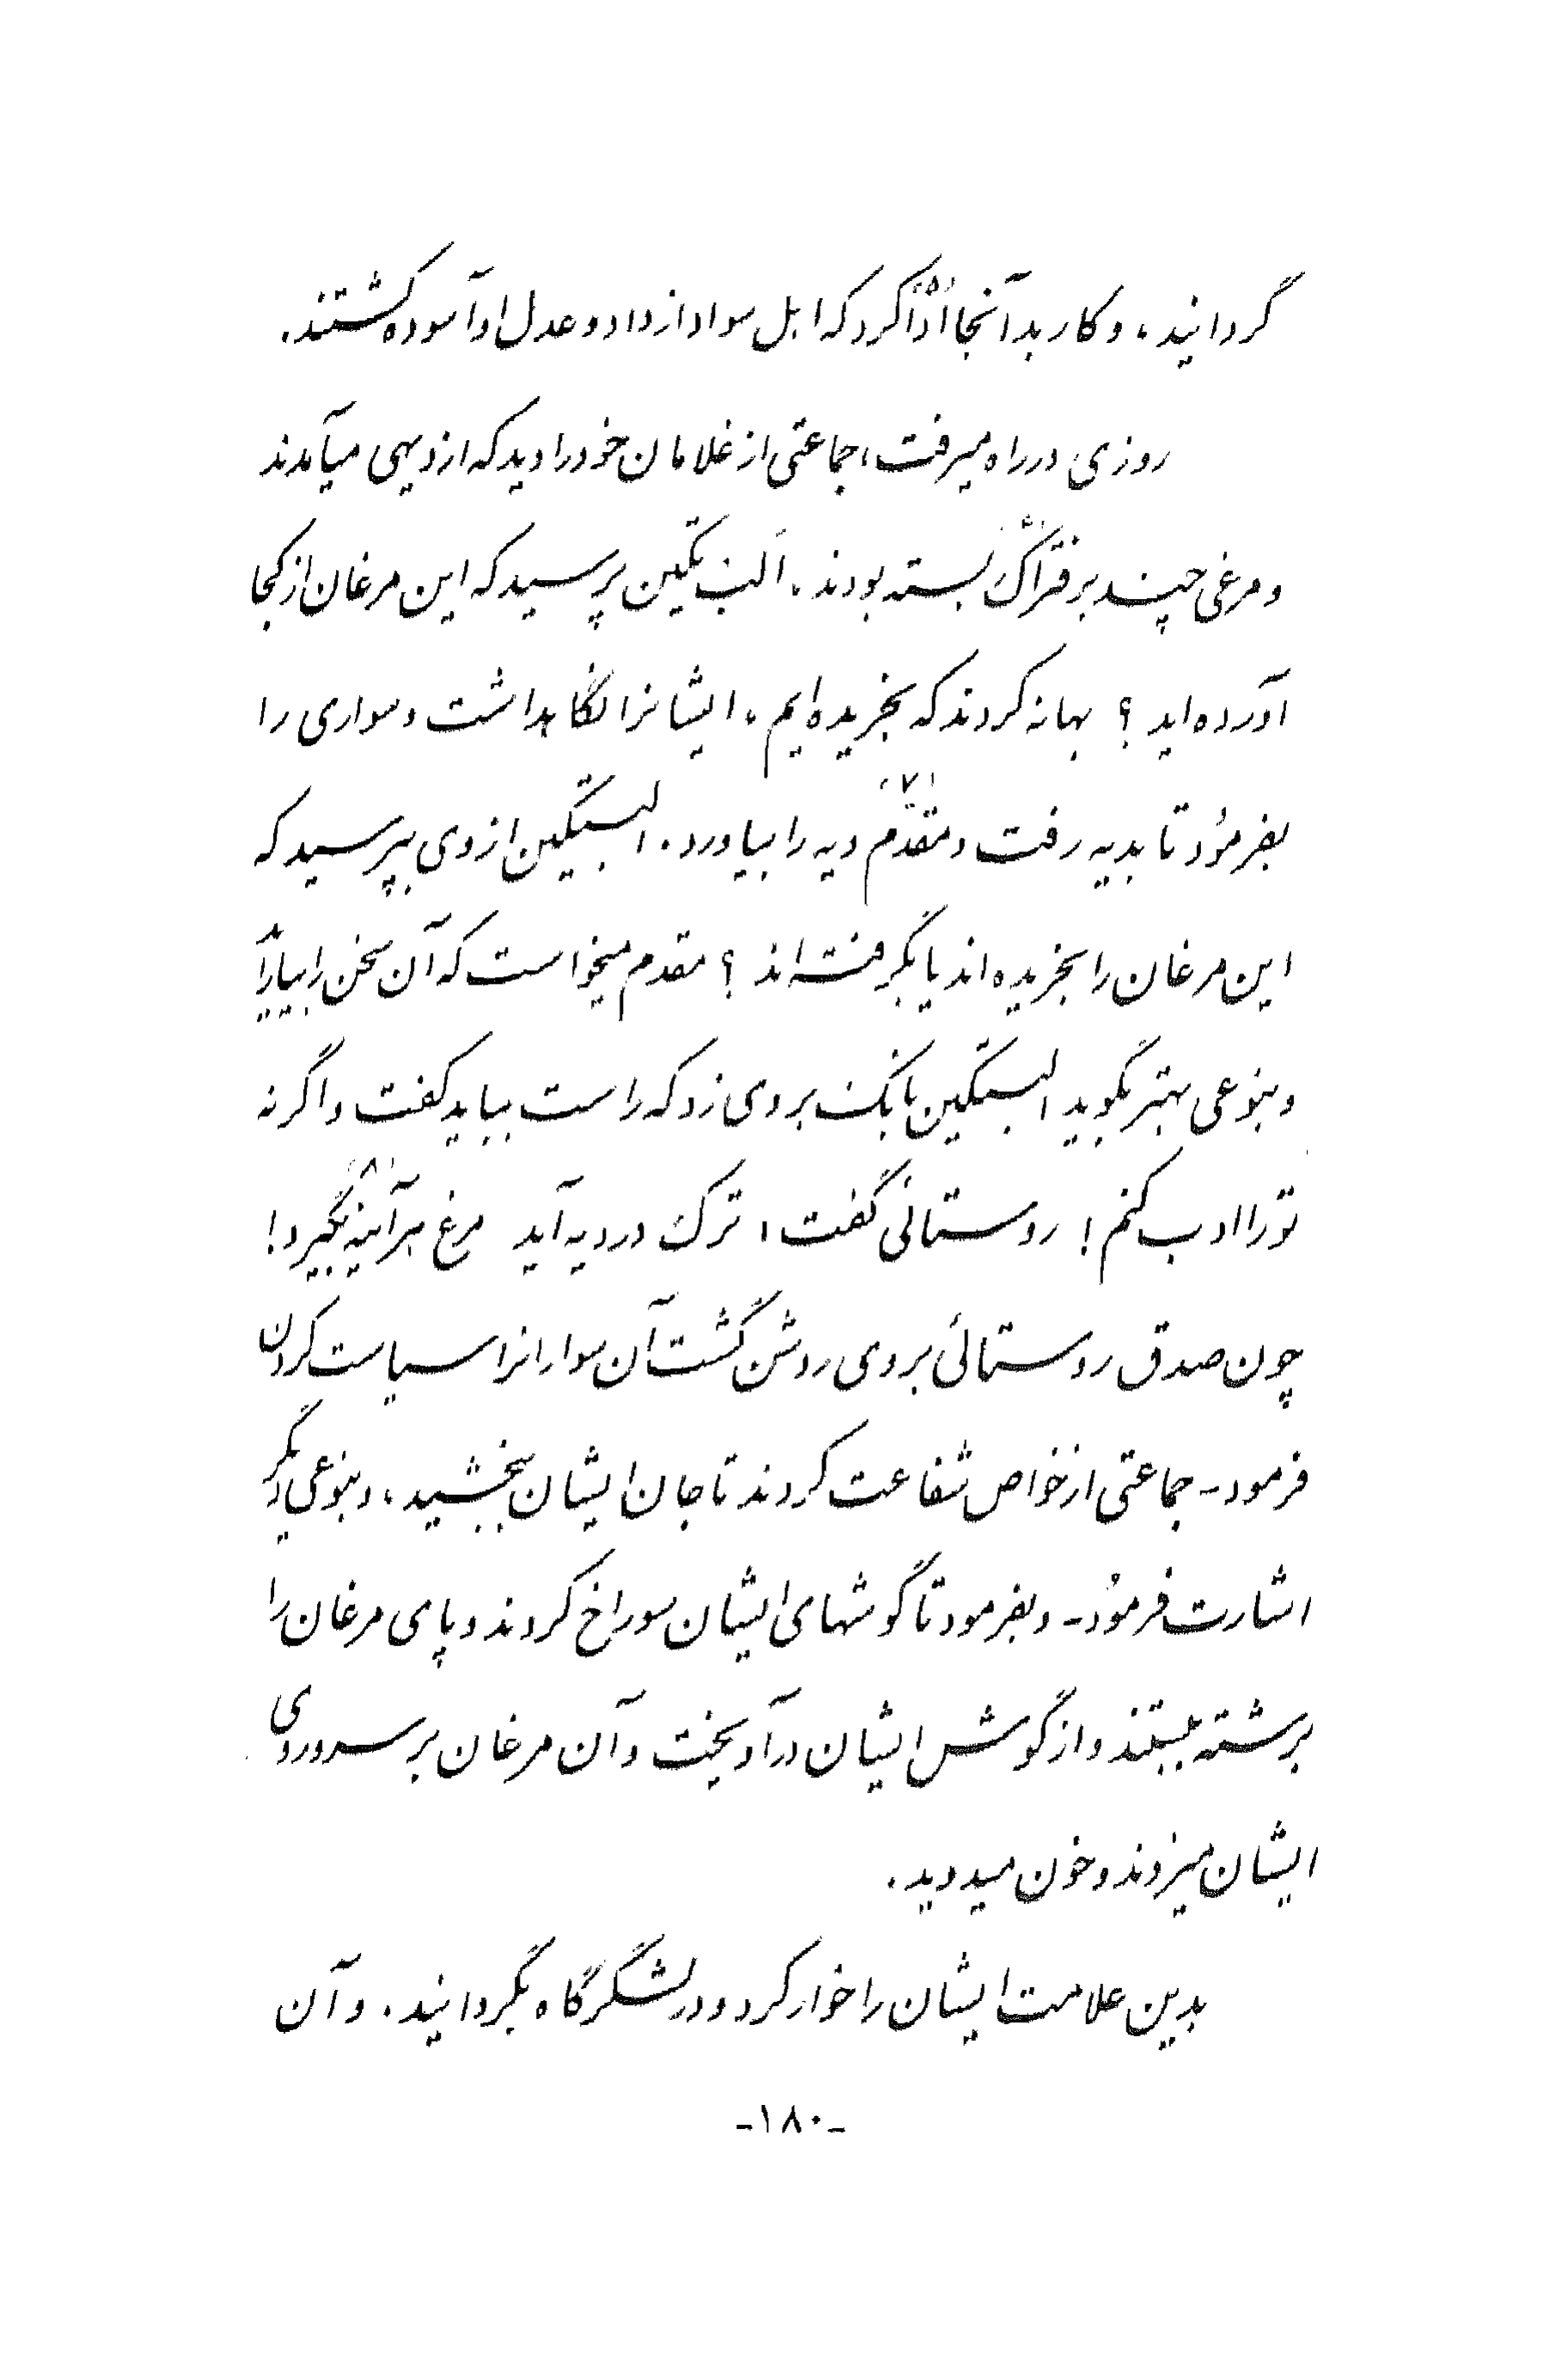 گردانید، و کار بدآنجا اَدّا(۵) کرد که اهل سواد از داد و عدل او آسوده گشتند.
روزی در راه میرفت، جماعتی از غلامان خود را دید که از دیهی میآمدند
و مرغی چند بر فتراک(۶) بسته بودند. اَلب تکین پرسید که این مرغان از کجا
آورده‌اید؟ بهانه کردند که بخریده‌ایم، ایشانرا نگاهداشت و سواری را
بفرمُود تا بدیه رفت و متقدّم(۷) دیه را بیاورد. البتگین از وی بپرسید که
این مرغان را بخریده‌اند یا بگرفته‌اند؟ مقدم میخواست که آن سخن را بیاراید
و بنوعی بهتر بگوید البتگین بانگ بر وی زد که راست بباید گفت و اگرنه
تو را ادب کنم! روستائی گفت، ترک در دیه آید مرغ هرآینه(۸) بگیرد!
چون صدق روستائی بر وی روشن گشت آن سوارانرا سیاست کردن
فرمود- جماعتی از خواص شفاعت کردند تا جان ایشان ببخشید، و بنوعی دیگر
اشارت فرمُود- و بفرمود تا گوشهای ایشان سوراخ کردند و پای مرغان را
برشته ببستند و از گوش ایشان درآویخت و آن مرغان بر سر و روی
ایشان میزدند و خون میدوید.
بدین علامت ایشان را خوار کرد و در لشگرگاه بگردانید. و آن
-۱۸۰-